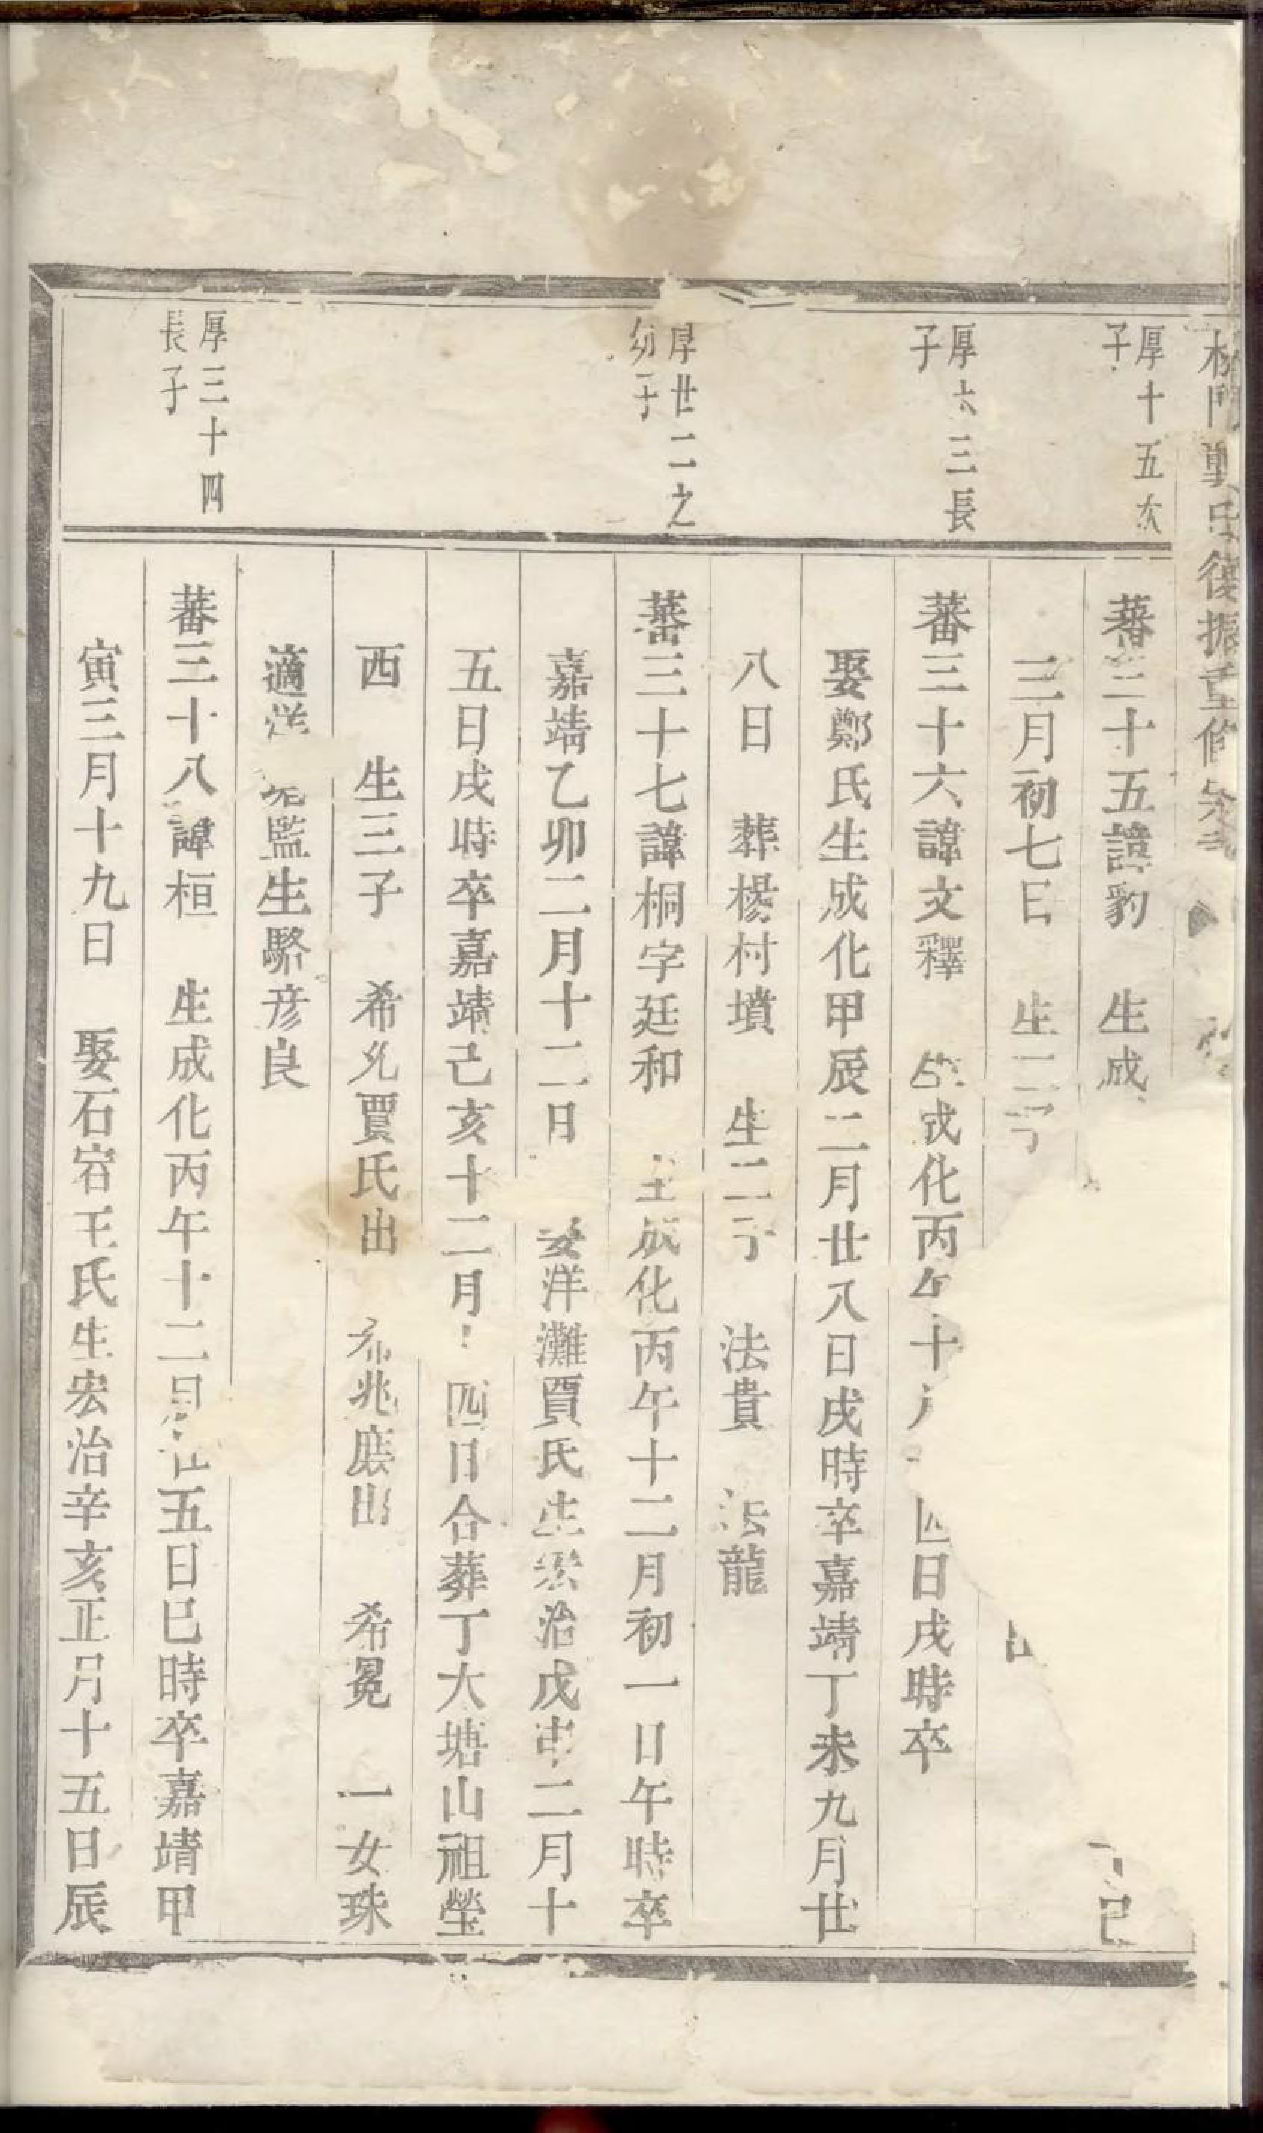 氏復振重修宗
厚十五次
子
蕃三十五諱豹 生成
己
三月初七日 生二子
厚六三長
子
蕃三十六諱文釋 生成化丙午十 四日戌時卒
娶鄭氏生成化甲辰二月廿八日戌時卒嘉靖丁未九月廿
八日 葬楊村墳 生二子 法貴 法龍
厚廿二之
幼子
蕃三十七諱桐字廷和 生成化丙午十二月初一日午時卒
嘉靖乙卯二月十二日 娶洋灘賈氏生宏治戊申二月十
五日戌時卒嘉靖己亥十二月 四日合葬丁大塘山祖塋
西 生三子 希允賈氏出 希兆庶出 希冕 一女珠
適洋 監生駱彦良
厚三十四
長子
蕃三十八諱桓 生成化丙午十二月廿五日巳時卒嘉靖甲
寅三月十九日 娶石宕王氏生宏治辛亥正月十五日辰